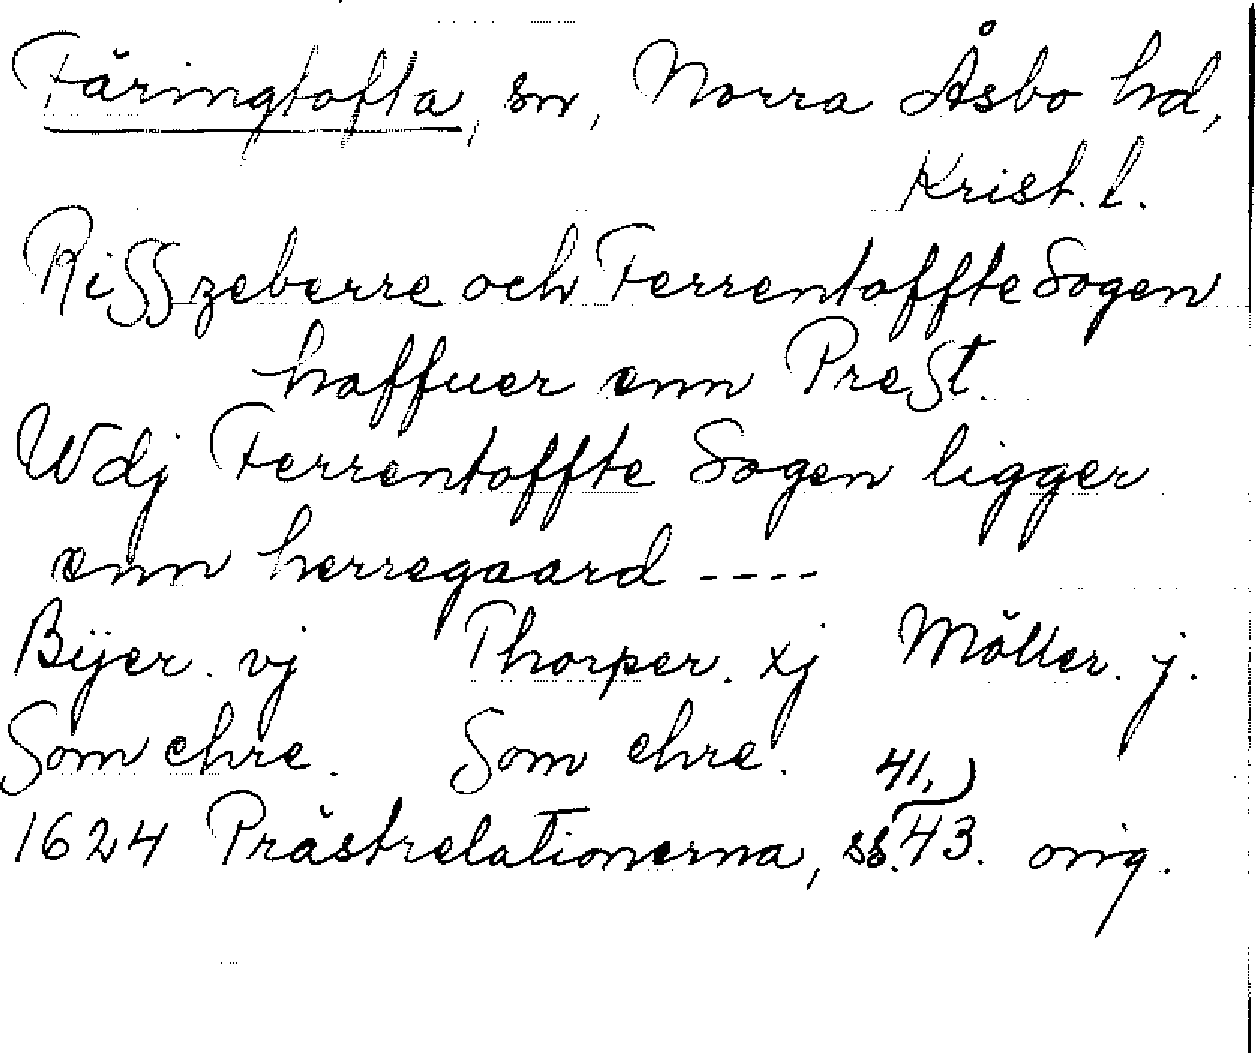 Färingtofta, sn, Norra Åsbo hd,
Krist. l.
Risszeberre och Ferrentoffte Sogen
haffuer enn Prest.
Wdj Ferrentoffte Sogen ligger
enn herregaard ----
Bijer. vj Thorper. xj Möller. j.
Som ehre. Som ehre.
1624 Prästrelationerna, ss. 41, 43. orig.